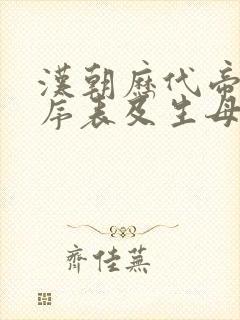 漢朝歷代帝
序表及生母
齊佳蕪